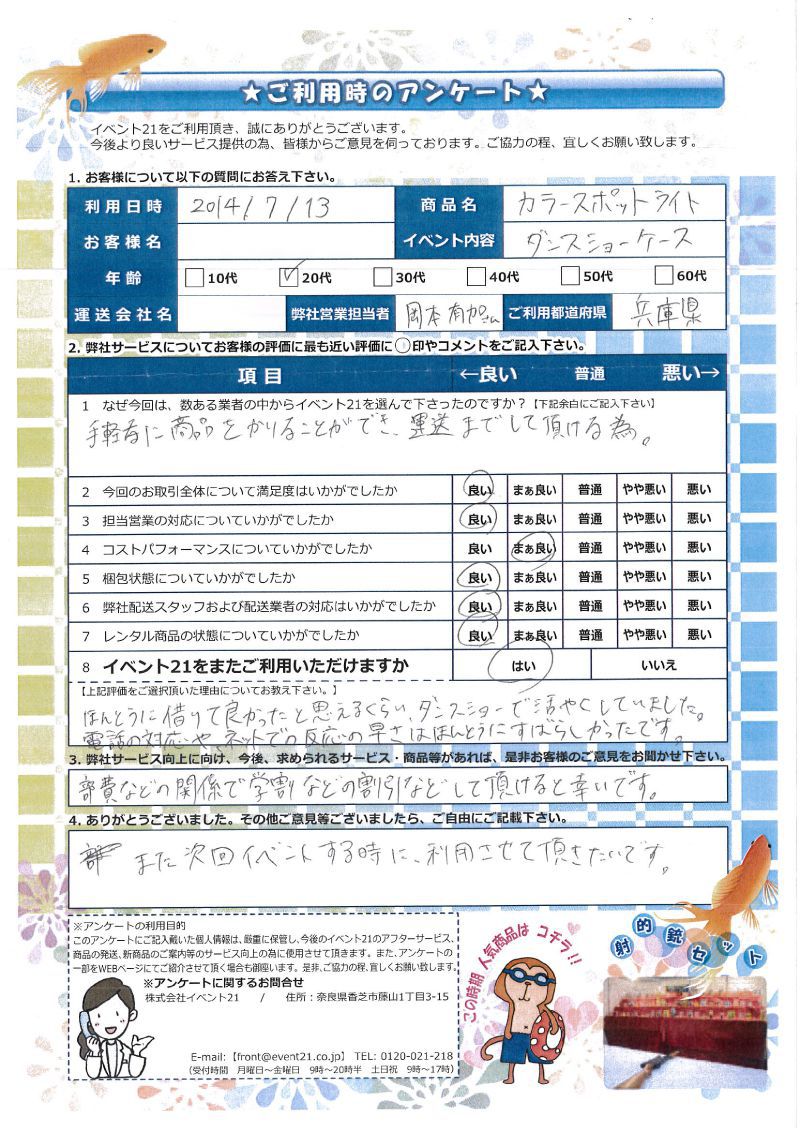 ★ご利用時のアンケート★
イベント21をご利用頂き、誠にありがとうございます。
今後より良いサービス提供の為、皆様からご意見を伺っております。ご協力の程、宜しくお願い致します。
1. お客様について以下の質問にお答え下さい。
利用日時 2014/7/13 商品名 カラースポットライト
お客様名 イベント内容 ダンスショーケース
年齢 10代 ✓20代 30代 40代 50代 60代
運送会社名 弊社営業担当者 岡本有加さん ご利用都道府県 兵庫県
2. 弊社サービスについてお客様の評価に最も近い評価に○印やコメントをご記入下さい。
項目 ←良い 普通 悪い→
1 なぜ今回は、数ある業者の中からイベント21を選んで下さったのですか？【下記余白にご記入下さい】
手軽に商品をかりることができ、運送までして頂ける為。
2 今回のお取引全体について満足度はいかがでしたか 良い まぁ良い 普通 やや悪い 悪い
3 担当営業の対応についていかがでしたか 良い まぁ良い 普通 やや悪い 悪い
4 コストパフォーマンスについていかがでしたか 良い まぁ良い 普通 やや悪い 悪い
5 梱包状態についていかがでしたか 良い まぁ良い 普通 やや悪い 悪い
6 弊社配送スタッフおよび配送業者の対応はいかがでしたか 良い まぁ良い 普通 やや悪い 悪い
7 レンタル商品の状態についていかがでしたか 良い まぁ良い 普通 やや悪い 悪い
8 イベント21をまたご利用いただけますか はい いいえ
【上記評価をご選択頂いた理由についてお教え下さい。】
ほんとうに借りて良かったと思えるくらい、ダンスショーで活やくしていました。
電話の対応や、ネットでの反応の早さはほんとうにすばらしかったです。
3. 弊社サービス向上に向け、今後、求められるサービス・商品等があれば、是非お客様のご意見をお聞かせ下さい。
部費などの関係で学割などの割引などして頂けると幸いです。
4. ありがとうございました。その他ご意見等ございましたら、ご自由にご記載下さい。
また次回イベントする時に、利用させて頂きたいです。
※アンケートの利用目的
このアンケートにご記入戴いた個人情報は、厳重に保管し、今後のイベント21のアフターサービス、
商品の発送、新商品のご案内等のサービス向上の為に使用させて頂きます。また、アンケートの
一部をWEBページにてご紹介させて頂く場合も御座います。是非、ご協力の程、宜しくお願い致します。
※アンケートに関するお問合せ
株式会社イベント21 / 住所：奈良県香芝市藤山1丁目3-15
E-mail:【front@event21.co.jp】 TEL: 0120-021-218
（受付時間 月曜日～金曜日 9時～20時半 土日祝 9時～17時）
この時期 人気商品は コチラ！！
射的銃セット